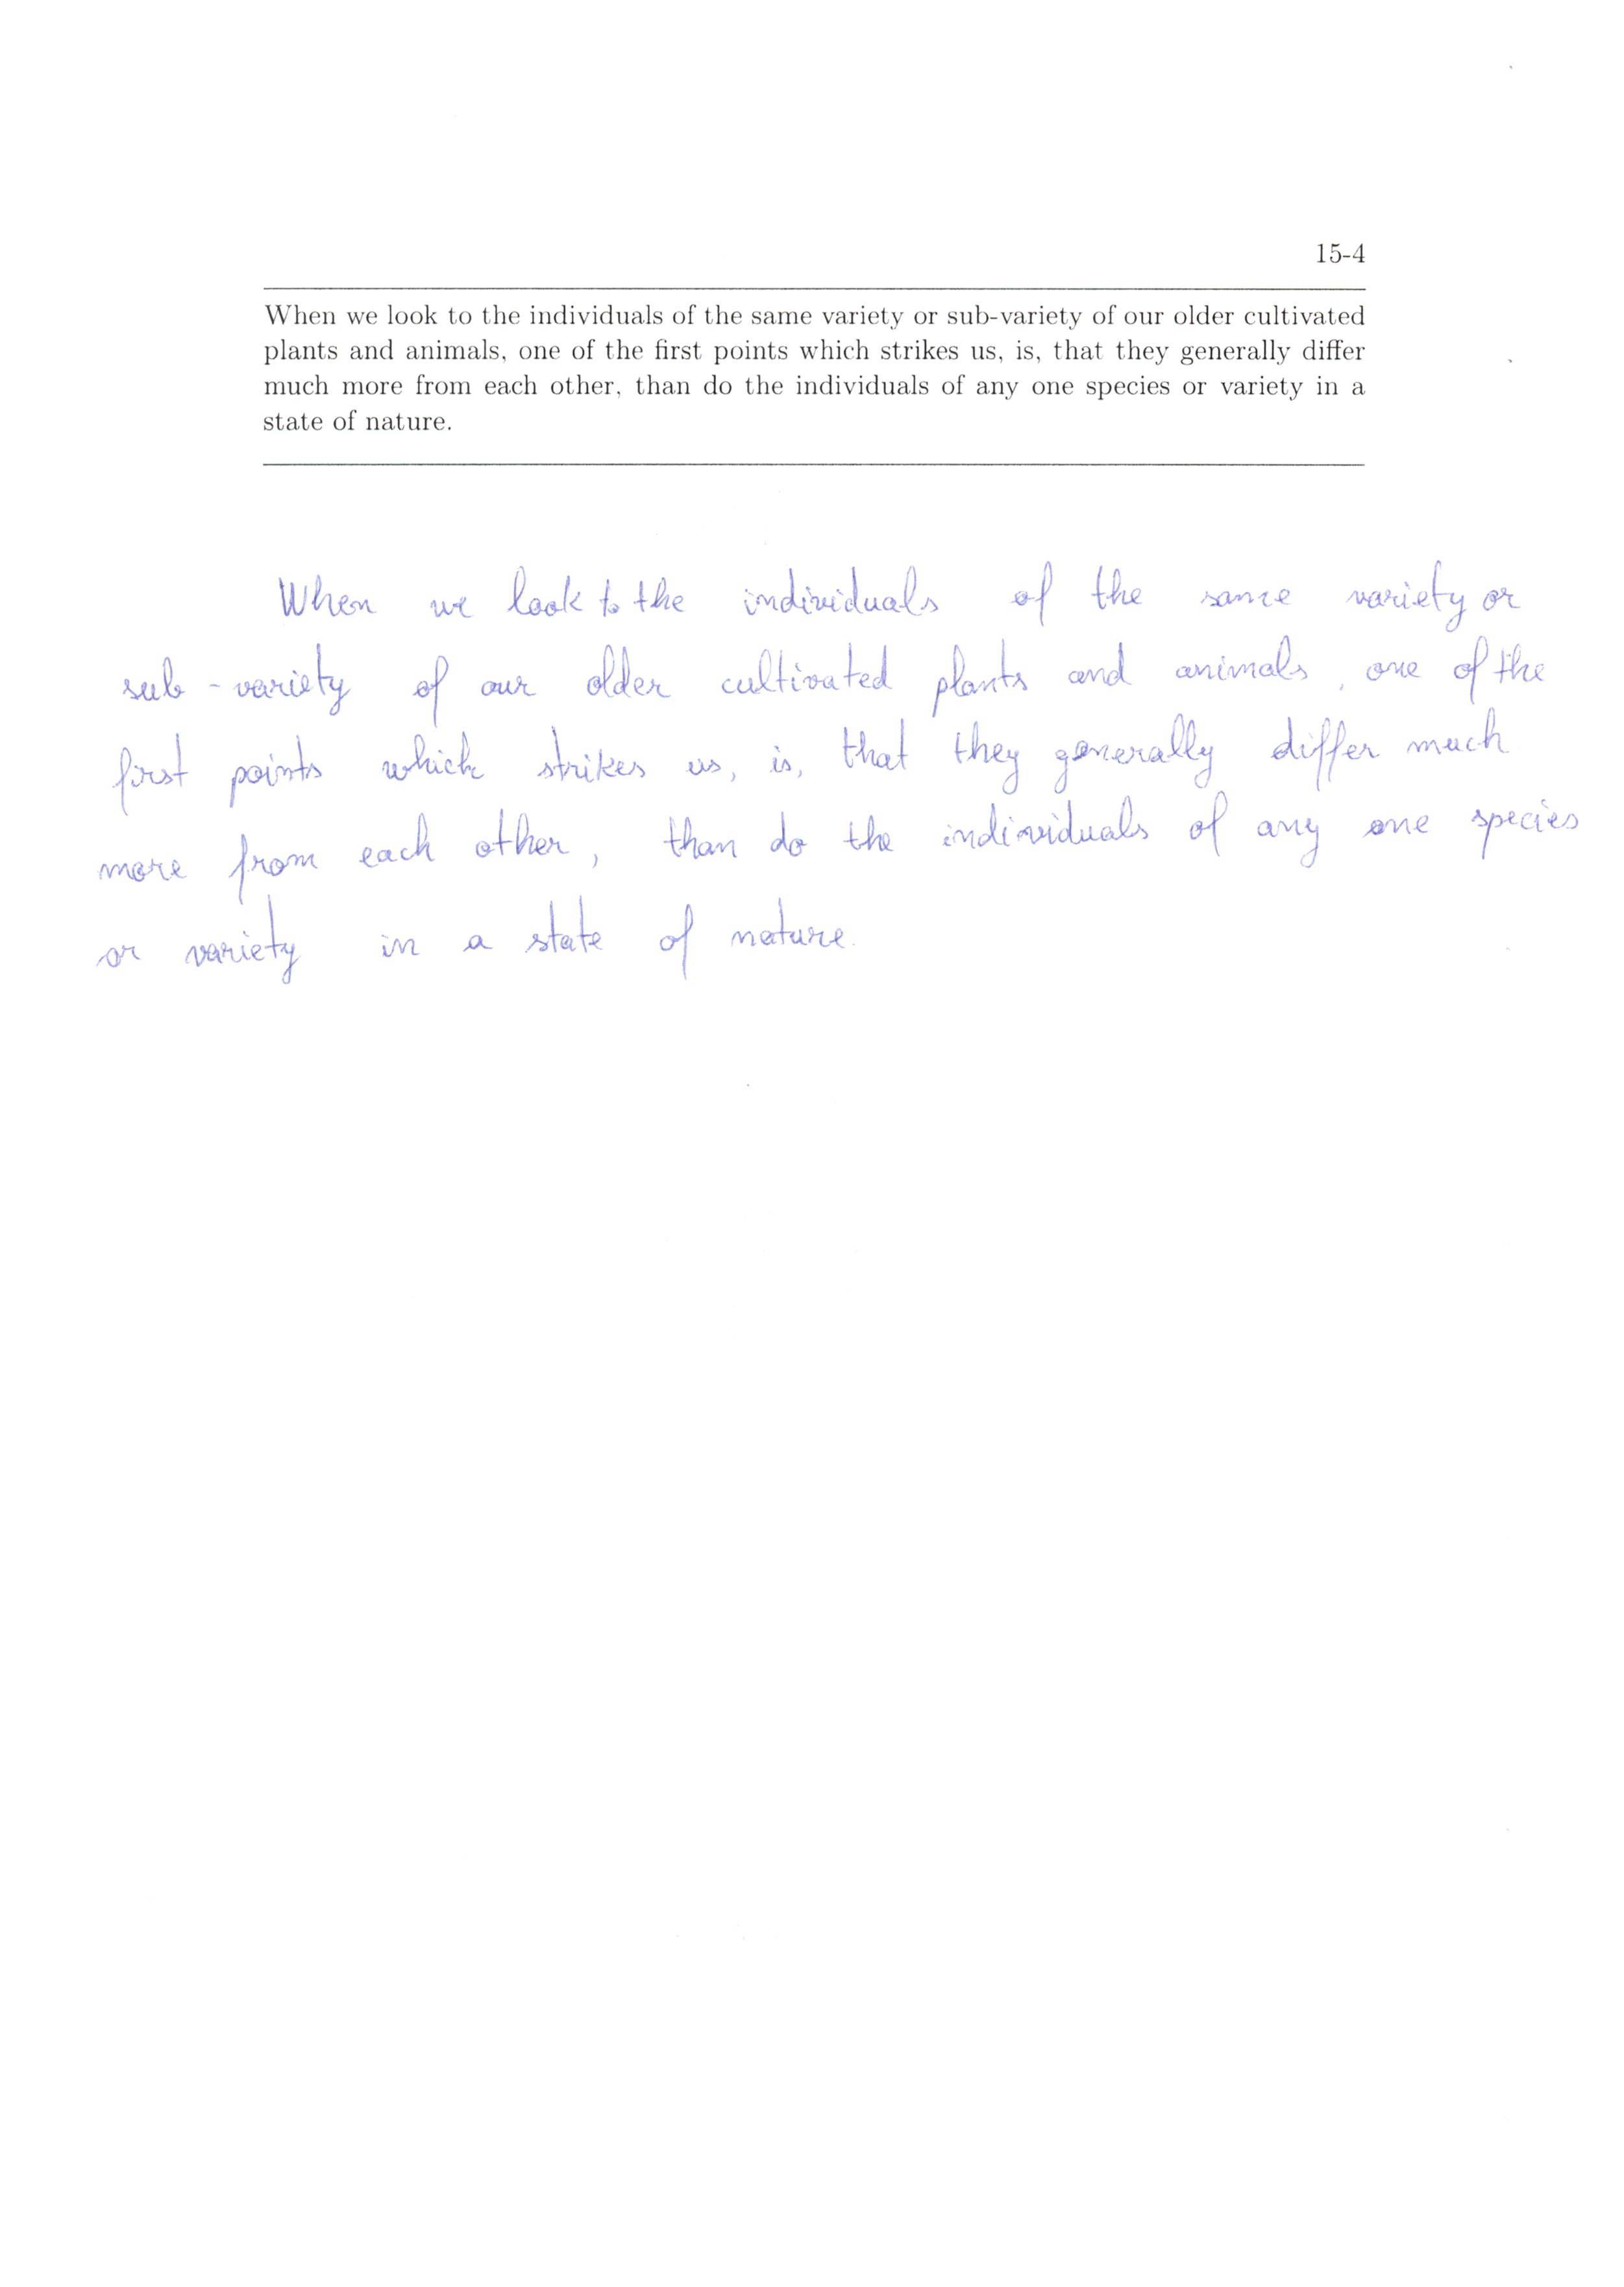 15-4
When we look to the individuals of the same variety or sub-variety of our older cultivated
plants and animals, one of the first points which strikes us, is, that they generally differ
much more from each other, than do the individuals of any one species or variety in a
state of nature.
When we look to the individuals of the same variety or
sub-variety of our older cultivated plants and animals, one of the
first points which strikes us, is, that they generally differ much
more from each other, than do the individuals of any one species
or variety in a state of nature.